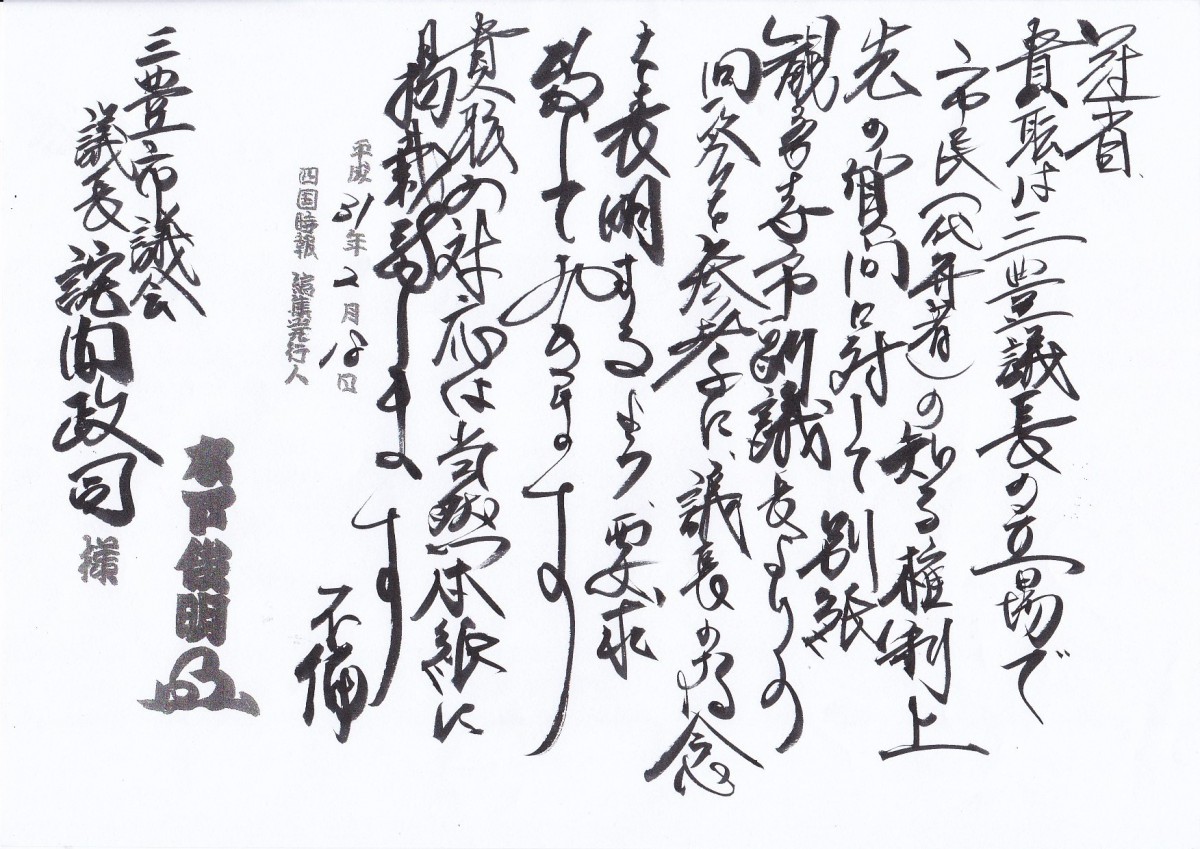 冠省
貴殿は三豊議長の立場で
市民(代弁者)の知る権利上
先の質問に対して別紙
観音寺市 副議長よりの
回答を参考に、議長の存念
を表明するよう、要求
致して
貴殿の対応は当然本紙に
掲載致します
不備
平成31年2月18日
四国時報 編集発行人
木下俊明
三豊市議会
議長 詫間政司 様